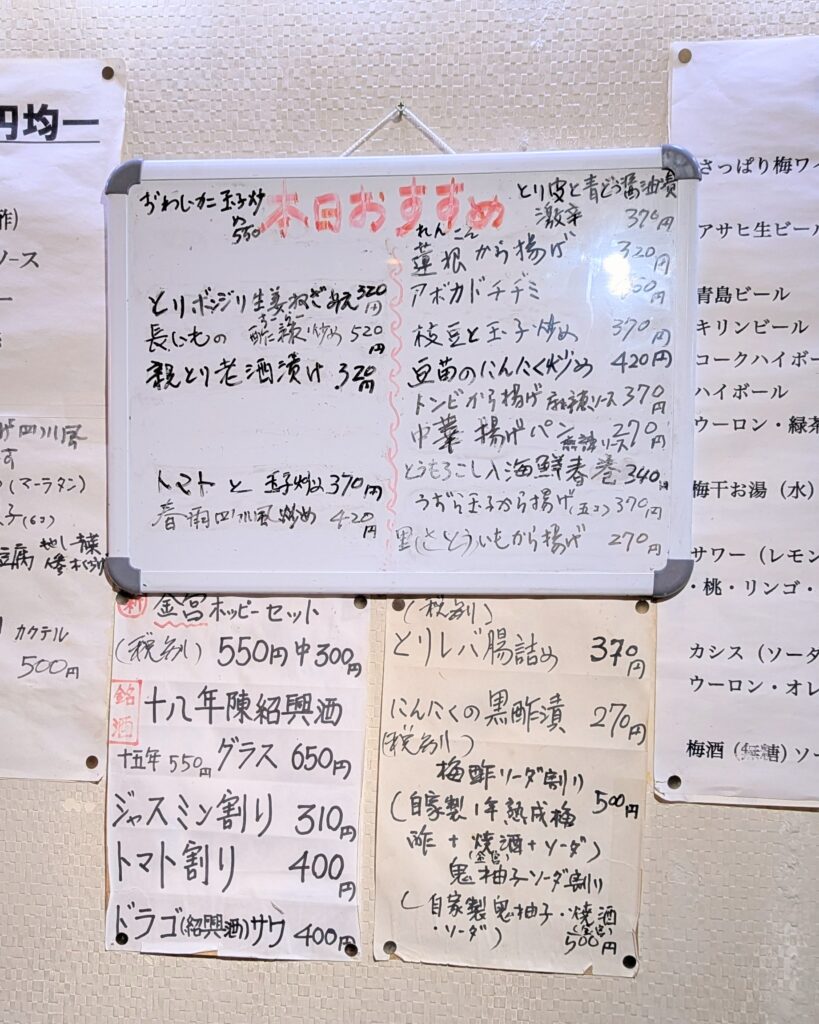 円均一
酢)
ソース
四川風
(マーラタン)
子(6コ)
豆腐
カクテル
500円
本日おすすめ
玉子炒
め
550
とりボンジリ生姜ねぎあえ320円
長いもの 酢辣炒め 520円
親とり老酒漬け 320円
トマト と 玉子炒め 370円
春雨四川風炒め 420円
とり皮と青とう醤油漬
激辛 370円
れんこん
蓮根から揚げ 320円
アボカドチヂミ
枝豆と玉子炒め 370円
豆苗のにんにく炒め 420円
トンビから揚げ麻辣ソース 370円
中華揚げパン 270円
とうもろこし入海鮮春巻 340円
うずら玉子から揚げ(五コ) 370円
里(さとう)いもから揚げ 270円
新 金宮ホッピーセット
(税別) 550円 中300円
銘酒 十八年陳紹興酒
十五年 550円 グラス 650円
ジャスミン割り 310円
トマト割り 400円
ドラゴ(紹興酒)サワ 400円
(税別)
とりレバ腸詰め 370円
にんにくの黒酢漬 270円
(税別)
梅酢ソーダ割り
(自家製1年熟成梅 500円
酢+焼酒+ソーダ)
(金宮)
鬼柚子ソーダ割り
(自家製鬼柚子・焼酒
(金宮)
・ソーダ) 500円
さっぱり梅ワイ
アサヒ生ビール
青島ビール
キリンビール
コークハイボー
ハイボール
ウーロン・緑茶
梅干お湯(水)
サワー(レモン
・桃・リンゴ・
カシス(ソーダ
ウーロン・オレ
梅酒(無糖)ソー